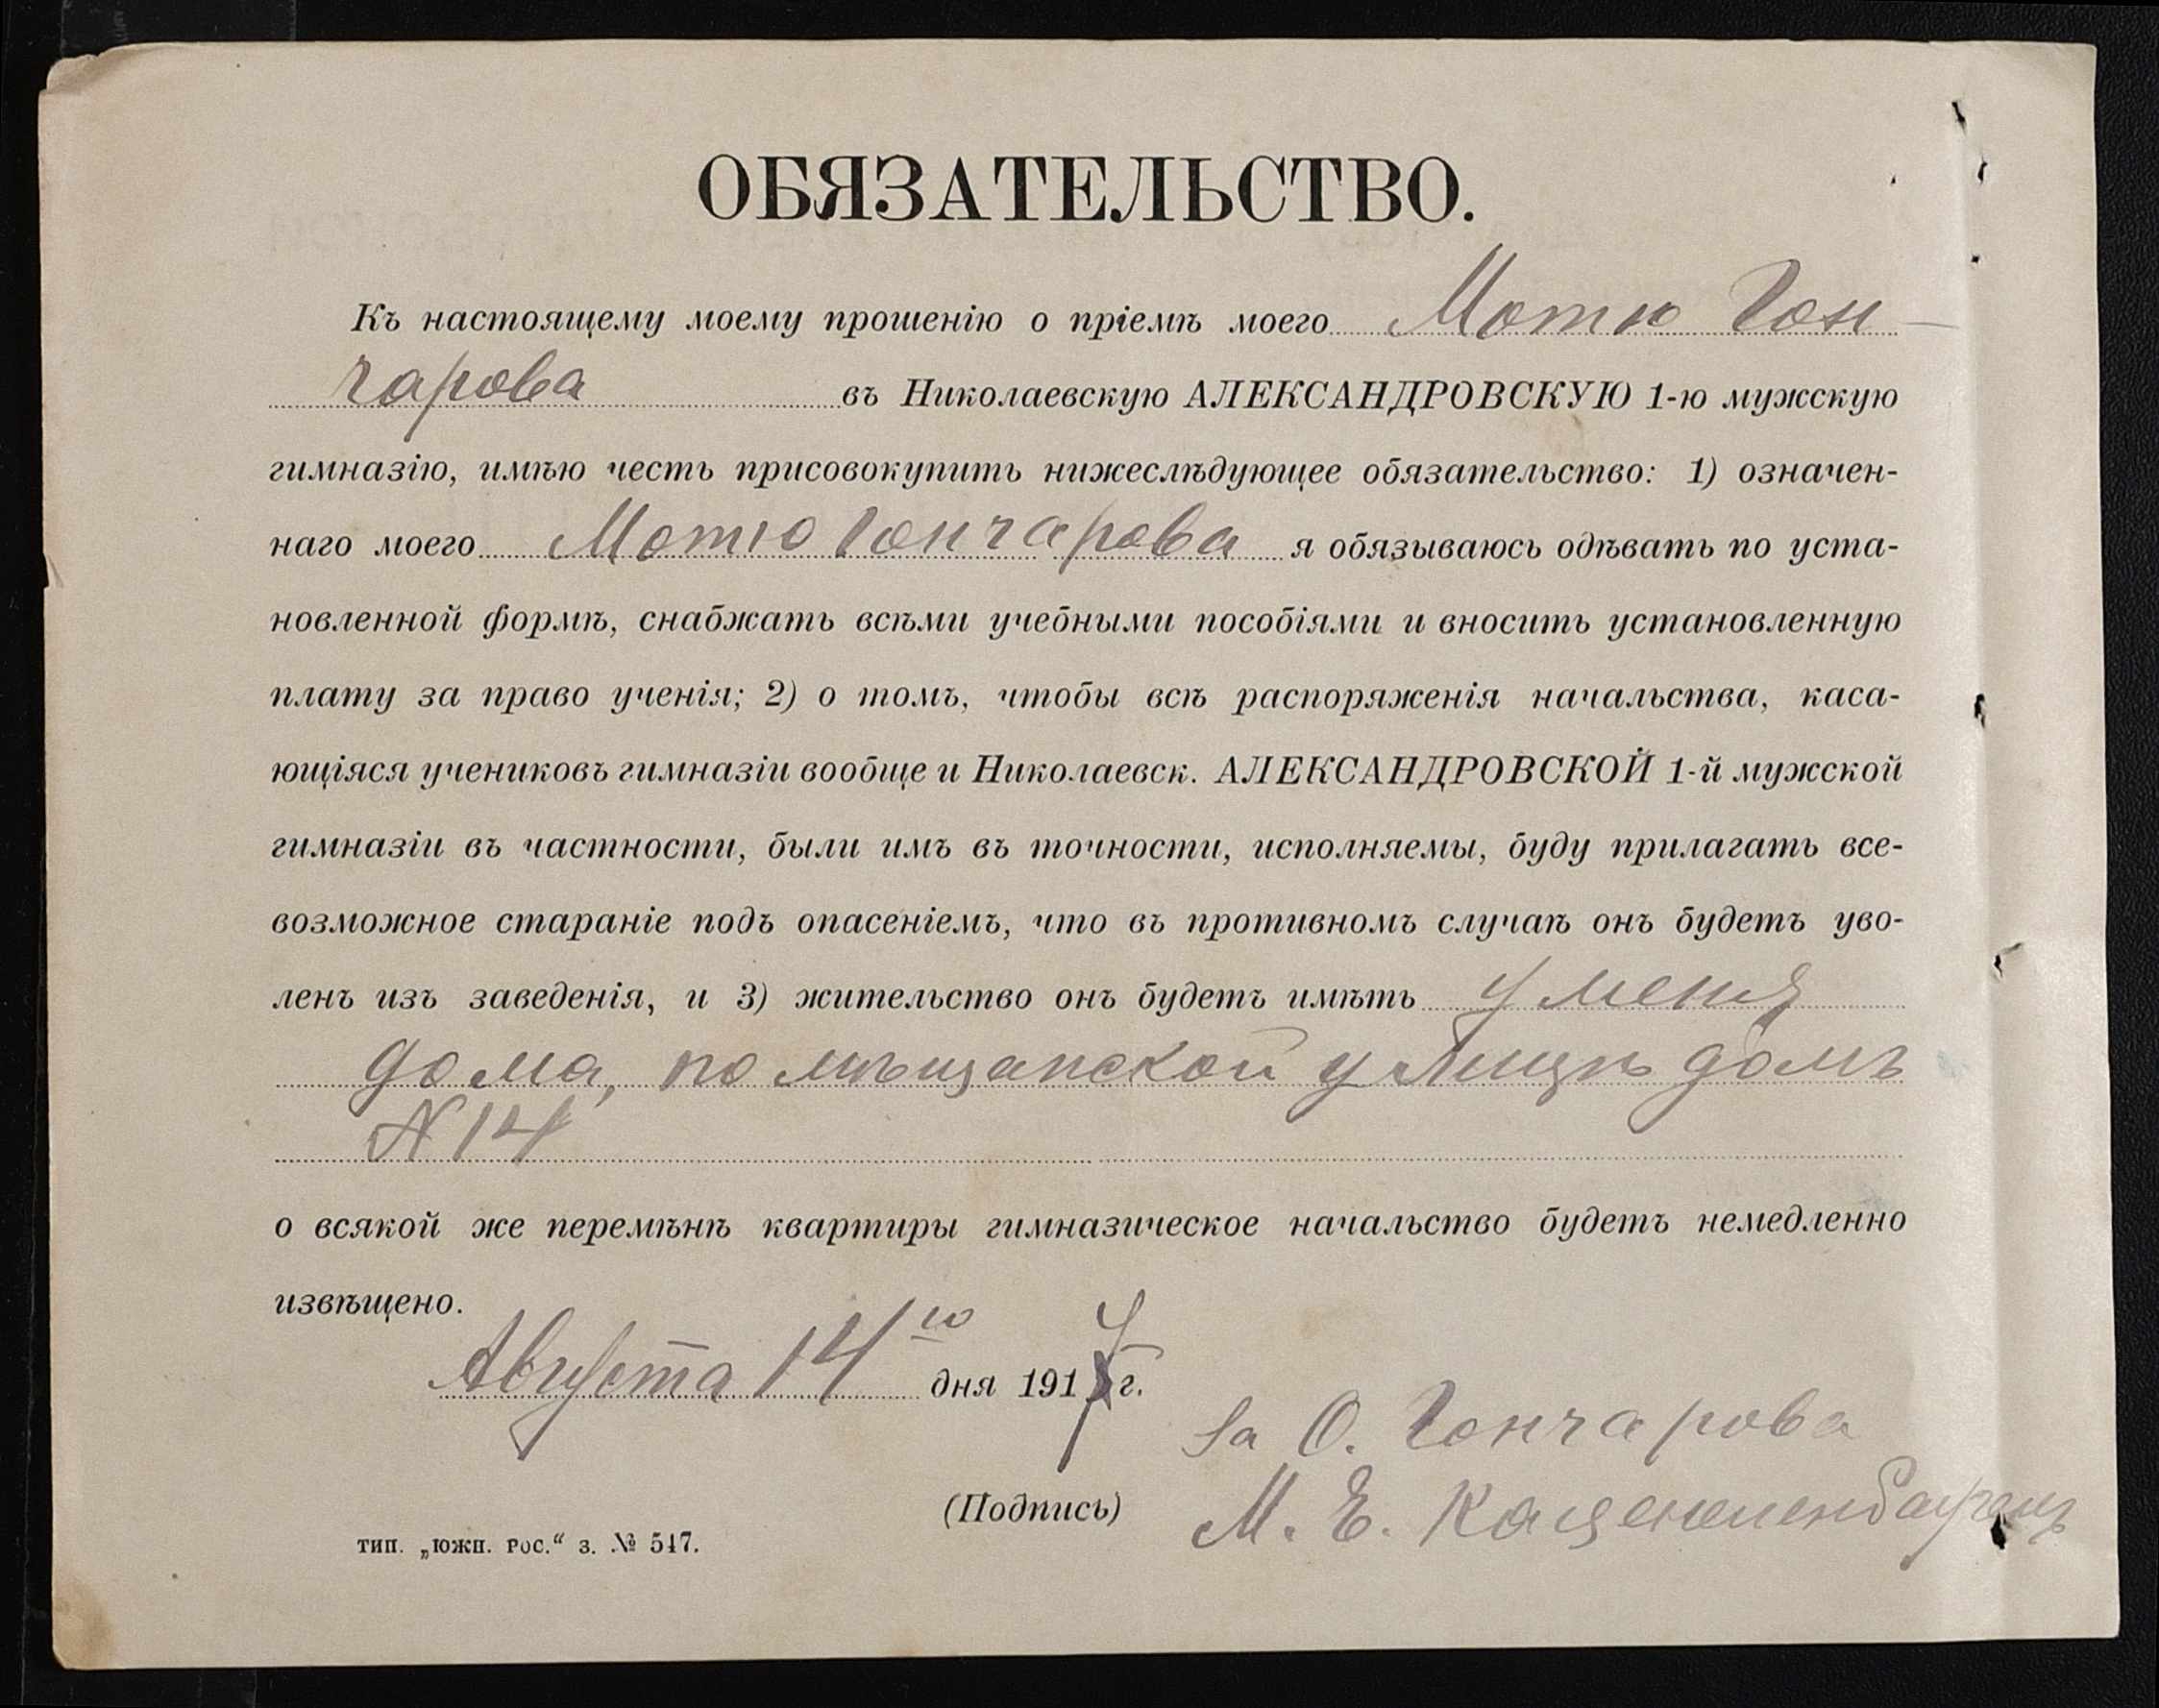 ОБЯЗАТЕЛЬСТВО.
Къ настоящему моему прошенію о пріемѣ моего Мотю Гон-
чарова въ Николаевскую АЛЕКСАНДРОВСКУЮ 1-ю мужскую
гимназію, имѣю честь присовокупить нижеслѣдующее обязательство: 1) означен-
наго моего Мотю Гончарова я обязываюсь одѣвать по уста-
новленной формѣ, снабжать всѣми учебными пособіями и вносить установленную
плату за право ученія; 2) о томъ, чтобы всѣ распоряженія начальства, каса-
ющіяся учениковъ гимназіи вообще и Николаевск. АЛЕКСАНДРОВСКОЙ 1-й мужской
гимназіи въ частности, были имъ въ точности, исполняемы, буду прилагать все-
возможное стараніе подъ опасеніемъ, что въ противномъ случаѣ онъ будетъ уво-
ленъ изъ заведенія, и 3) жительство онъ будетъ имѣть у меня
дома, по мѣщанской улицѣ домъ
N 14
о всякой же перемѣнѣ квартиры гимназическое начальство будетъ немедленно
извѣщено.
Августа 14го дня 1917 г.
За О. Гончарова
(Подпись) М. Е.
тип. „южн. рос.“ з. № 547.